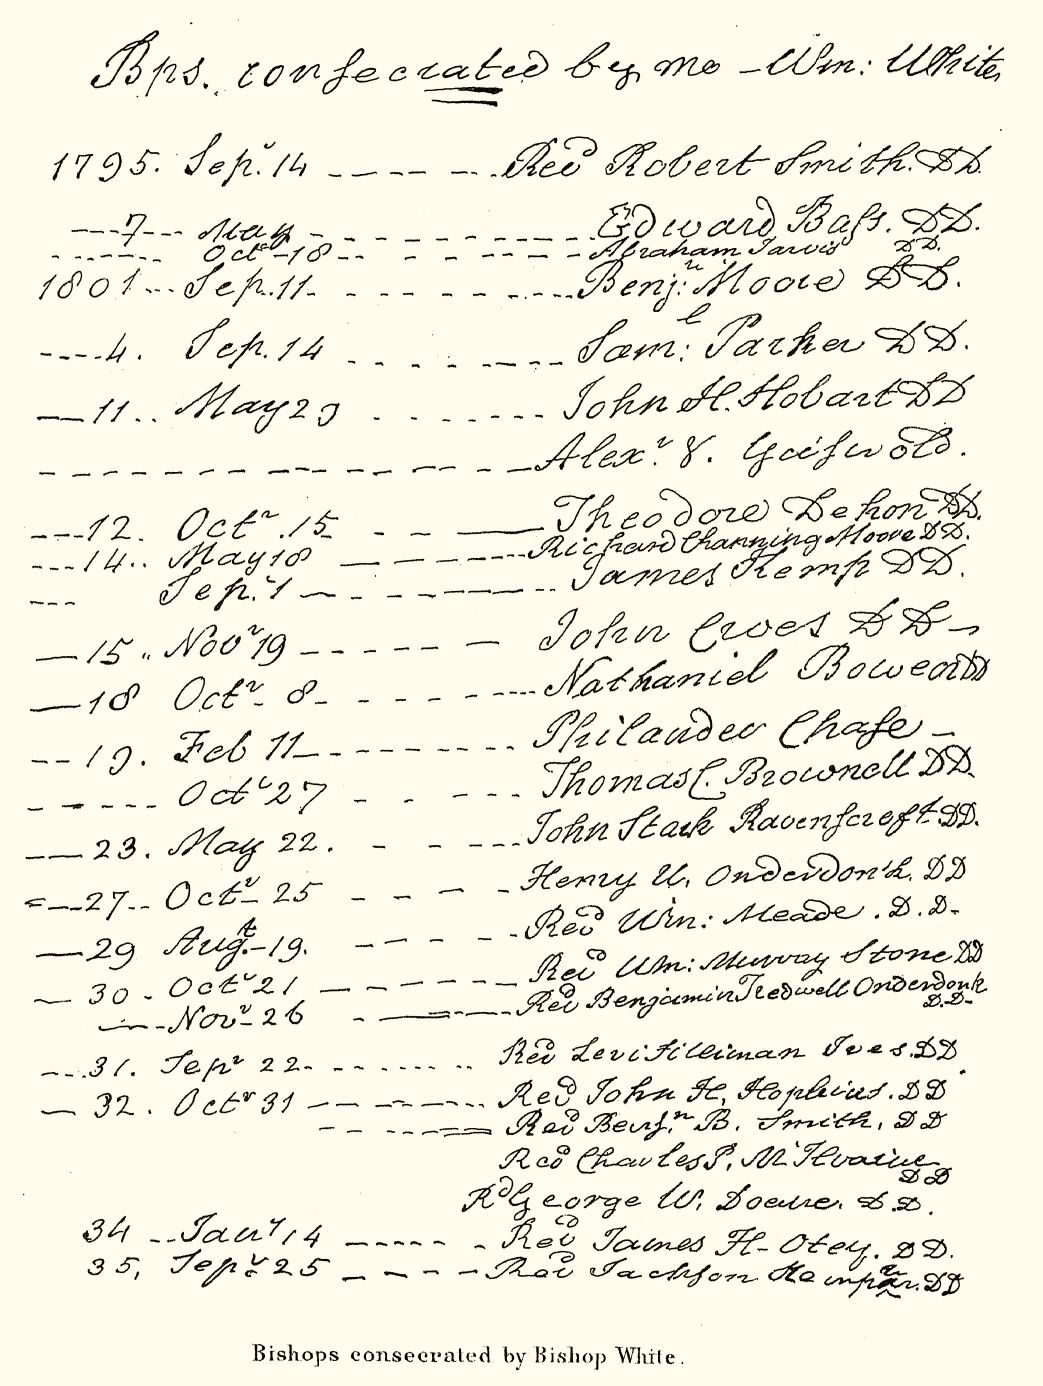 Bps. consecrated by me - Wm: White
1795. Sepr. 14 Revd Robert Smith. DD.
7 May Edward Bass. DD.
Octr 18 Abraham Jarvis DD.
1801 Sep. 11. Benjn: Moore DD.
4. Sep. 14 Saml: Parker DD.
11. May 29 John H. Hobart DD
Alexr. V. Griswold.
12. Octr. 15 Theodore Dehon DD.
14. May 18 Richard Channing Moore DD.
Sepr. 1 James Kemp DD.
15. Novr 19 John Croes DD
18 Octr 8 Nathaniel Bowen DD
19. Feb 11 Philander Chase
Octr 27 Thomas C. Brownell DD.
23. May 22. John Stark Ravenscroft DD.
27 Octr 25 Henry U. Onderdonk. DD
29 Augt. 19. Revd Wm: Meade. D.D.
30. Octr 21 Revd Wm: Murray Stone DD
Novr 26 Revd Benjamin Tredwell Onderdonk
D.D.
31. Sepr 22. Revd Levi Silliman Ives. DD
32. Octr 31 Revd John H. Hopkins. DD
Revd Benjn B. Smith. DD
Revd Charles P. McIlvaine
DD
Rd George W. Doane. DD.
34 Jany 14 Revd James H. Otey. DD.
35, Sepr 25 Revd Jackson Kemper. DD
Bishops consecrated by Bishop White.